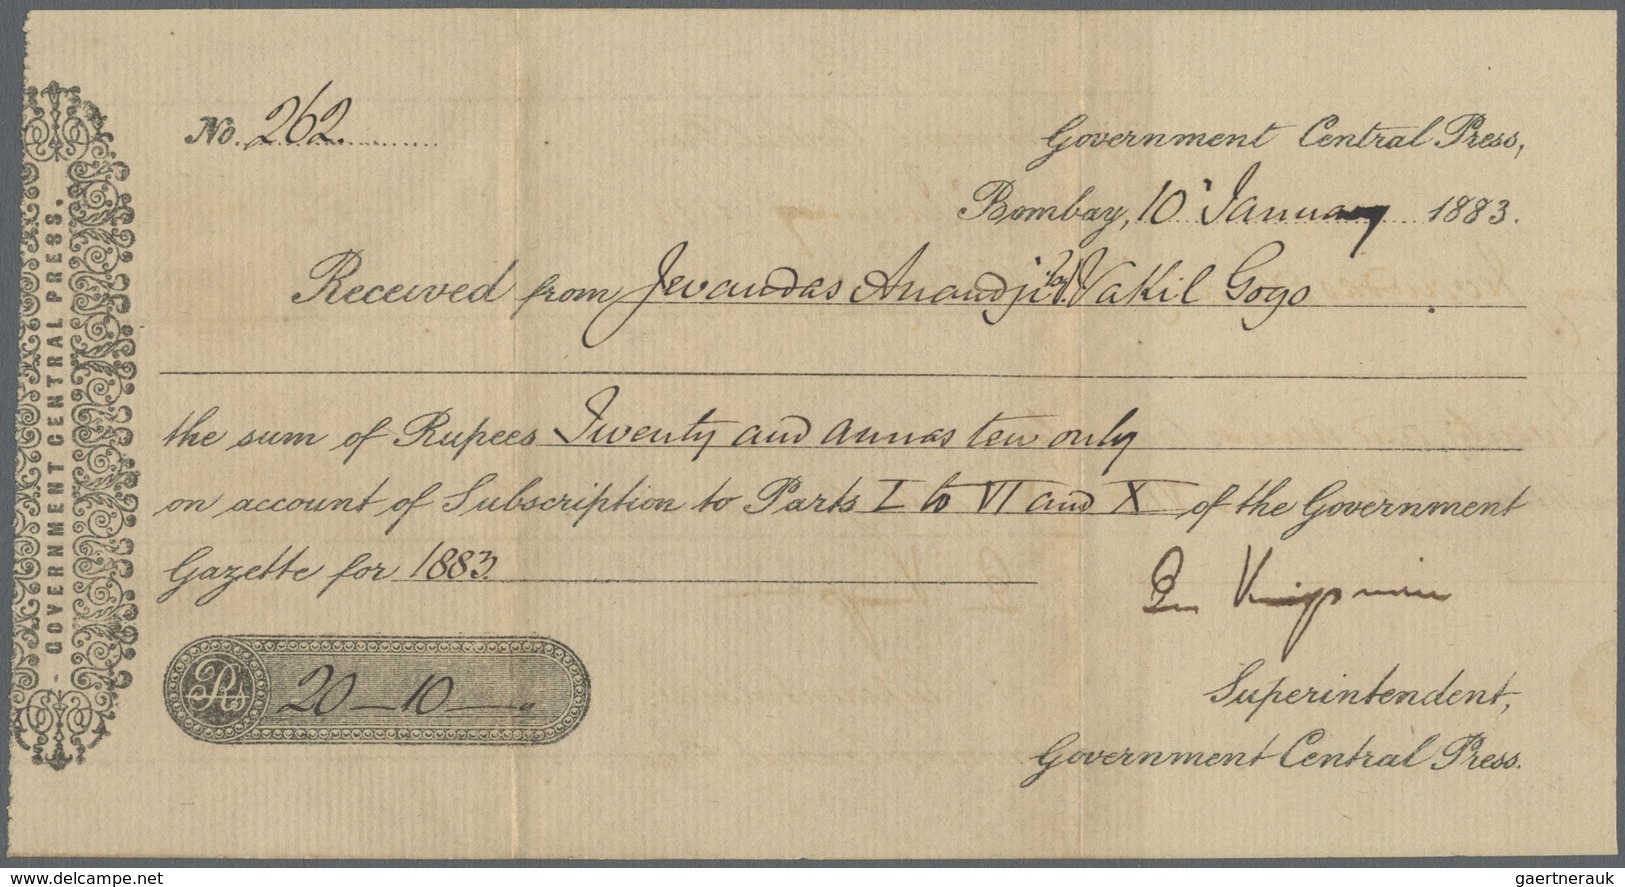 GOVERNMENT CENTRAL PRESS.
No. 262
Government Central Press,
Bombay, 10 January 1883.
Received from Jevandas Anandji Vakil Gogo
the sum of Rupees Twenty and annas ten only
on account of Subscription to Parts I to VI and X of the Government
Gazette for 1883.
Superintendent,
Rs 20—10—
Government Central Press.
www.delcampe.net
gaertnerauk